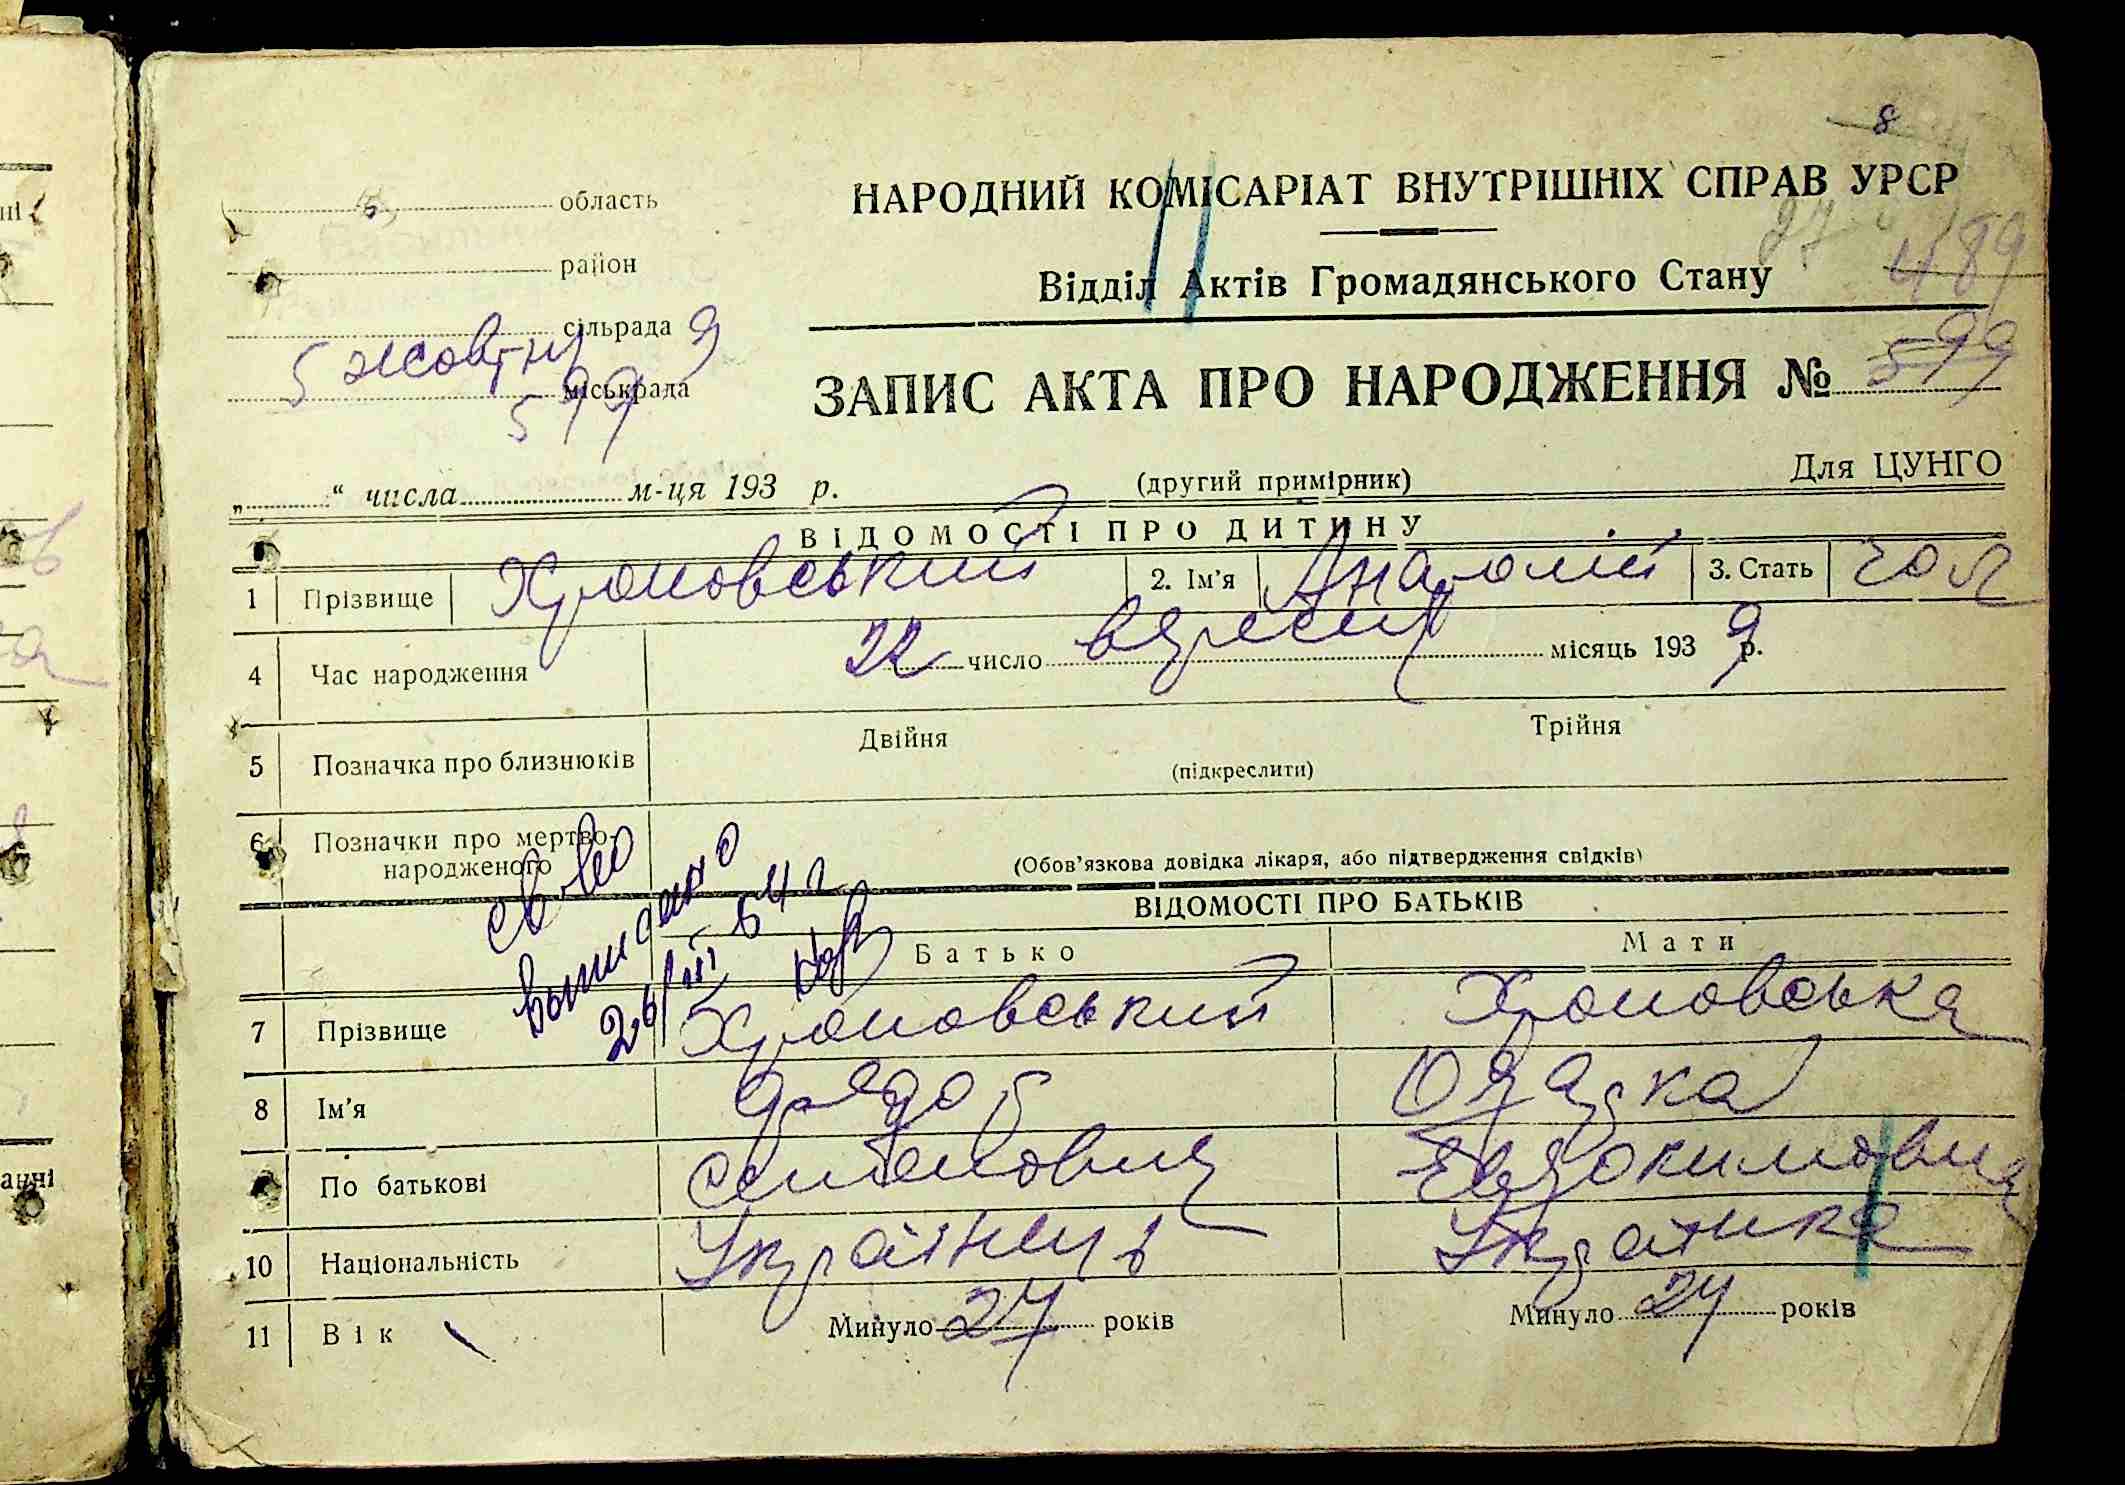 8
область
НАРОДНИЙ КОМІСАРІАТ ВНУТРІШНІХ СПРАВ УРСР
27
район
Відділ Актів Громадянського Стану
489
сільрада
5 жовтня 9
міськрада
599
ЗАПИС АКТА ПРО НАРОДЖЕННЯ № 599
„ “ числа м-ця 193 р.
(другий примірник)
Для ЦУНГО
ВІДОМОСТІ ПРО ДИТИНУ
1 Прізвище Хроновський 2. Ім'я Анатолій 3. Стать чол
4 Час народження 22 число вересня місяць 1939 р.
5 Позначка про близнюків Двійня Трійня
(підкреслити)
6 Позначки про мертво-
народженого
(Обов'язкова довідка лікаря, або підтвердження свідків)
св-во
выписано
26/III 54 г
ВІДОМОСТІ ПРО БАТЬКІВ
Батько Мати
7 Прізвище Хроновський Хроновська
8 Ім'я
По батькові Евдокимовна
10 Національність Українец Українка
11 Вік Минуло 27 років Минуло 24 років
анні